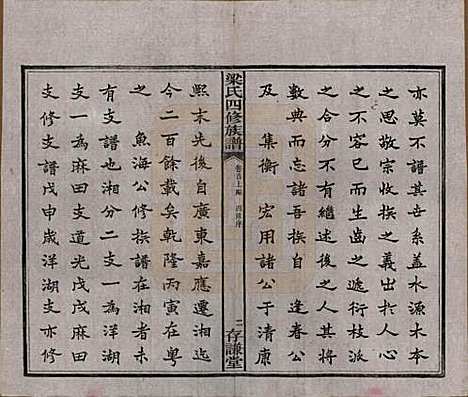 亦莫不譜其世系蓋水源木本
之思敬宗收族之義出於人心
之不容已而生齒之衍枝派
之合分不有繼述之人其將
數典而忘諸吾族自 逢春公
及 集衡 宏用諸公于清康
梁氏四修族譜
卷首上
二 存謙堂
熙末先後自廣東嘉應遷湘迄
今二百餘載矣乾隆丙寅在粵
之 魚海公修族譜在湘者未
有支譜也湘分二支一為洋湖
支一為麻田支道光戊戌麻田
支修支譜戊申歲洋湖支亦修